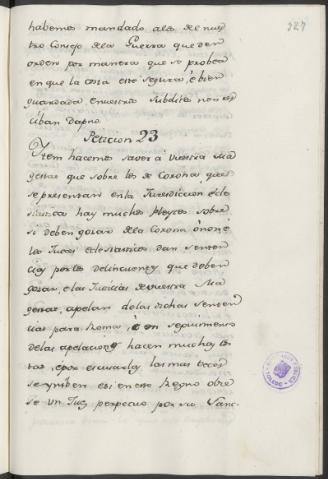 327
habemos mandado a los de nues
tro Consejo de la Guerra que den
orden por manera que se probea
en que la costa este segura, è bien
guardada e nuestros subditos no rez
ciban dapno.
Peticion 23
Ytem hacemos saver à Vuestra Ma
gestad que sobre los de Corona que
se presentan en la Jurisdiccion Ecle
siastica hay muchos Pleytos sobre
si deben gozar de la Corona ò no: è
los Jueces eclesiasticos dan senten
cias por los delincuentes que deben
gozar, e las Justicias de Vuestra Ma
gestad, apelan de las dichas senten
cias para Roma, è en seguimiento
de las apelaciones hacen muchas cos
tas, è por escusarlas, las mas veces
se escriben en este Reyno obie
se un Juez perpetuo por su Sanc.